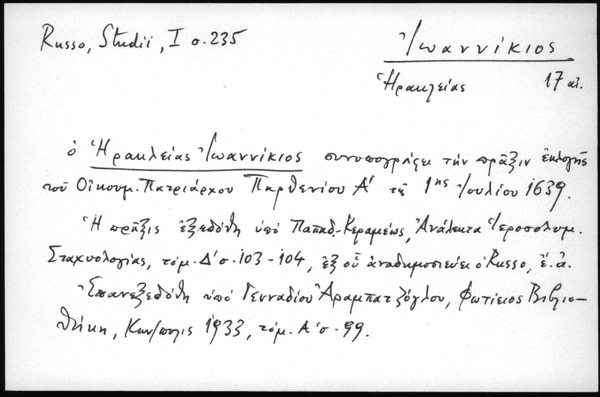 Russo, Studii, I σ. 235
Ἰωαννίκιος
Ἡρακλείας 17 αἰ.
ὁ Ἡρακλείας Ἰωαννίκιος συνυπογράφει τὴν πρᾶξιν ἐκλογῆς
τοῦ Οἰκουμ. Πατριάρχου Παρθενίου Α' τῆς 1ης Ἰουλίου 1639.
Ἡ πρᾶξις ἐξεδόθη ὑπὸ Παπαδ.-Κεραμέως, Ἀνάλεκτα Ἱεροσολυμ.
Σταχυολογίας, τόμ. Δ' σ. 103-104, ἐξ οὗ ἀναδημοσιεύει ὁ Russo, ἔ.ἀ.
Ἐπανεξεδόθη ὑπὸ Γενναδίου Ἀραμπατζόγλου, Φωτίειος Βιβλιο-
θήκη, Κων/πολις 1933, τόμ. Α' σ. 99.